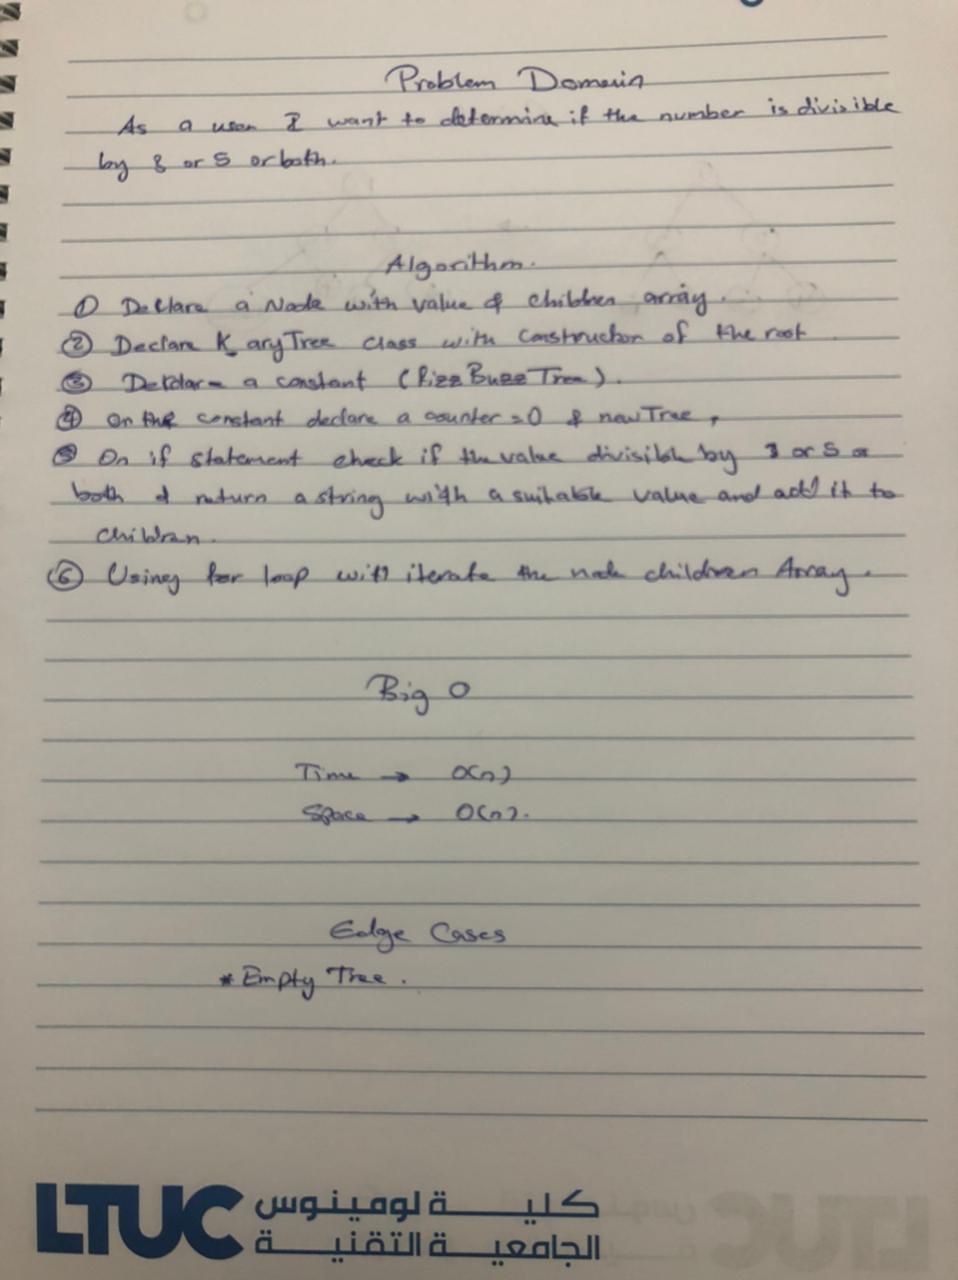 Problem Domain
As a user I want to determine if the number is divisible
by 3 or 5 or both.
Algorithm.
① Declare a Node with value & children array.
② Declare K_aryTree class with constructor of the root
③ Declare a constant (FizzBuzzTree).
④ On the constant declare a counter = 0 & newTree,
⑤ On if statement check if the value divisible by 3 or 5 or
both & return a string with a suitable value and add it to
children.
⑥ Using for loop with iterate the node children Array.
Big O
Time → O(n)
Space → O(n).
Edge Cases
* Empty Tree.
LTUC كلية لومينوس
الجامعية التقنية